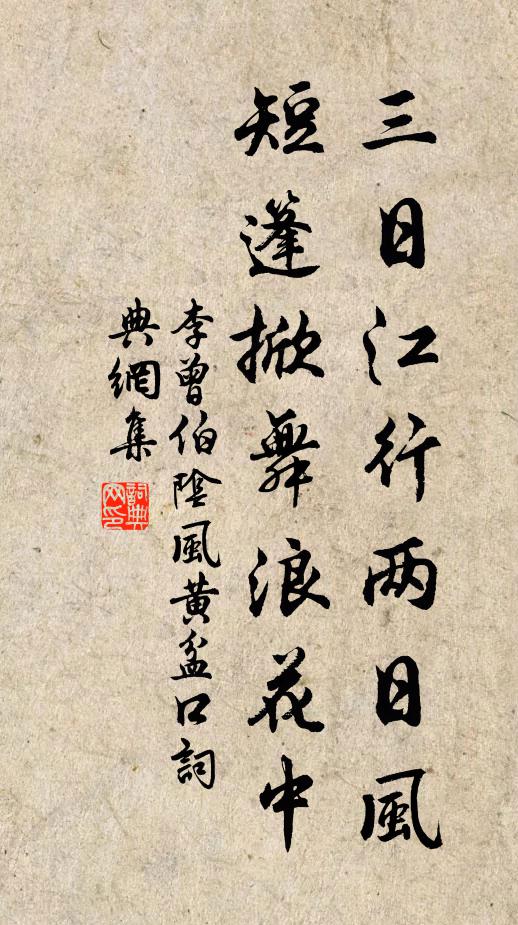 三日江行两日風
短蓬掀舞浪花中
李曾伯陰風黃盆口詞
典網集
詞典
网印